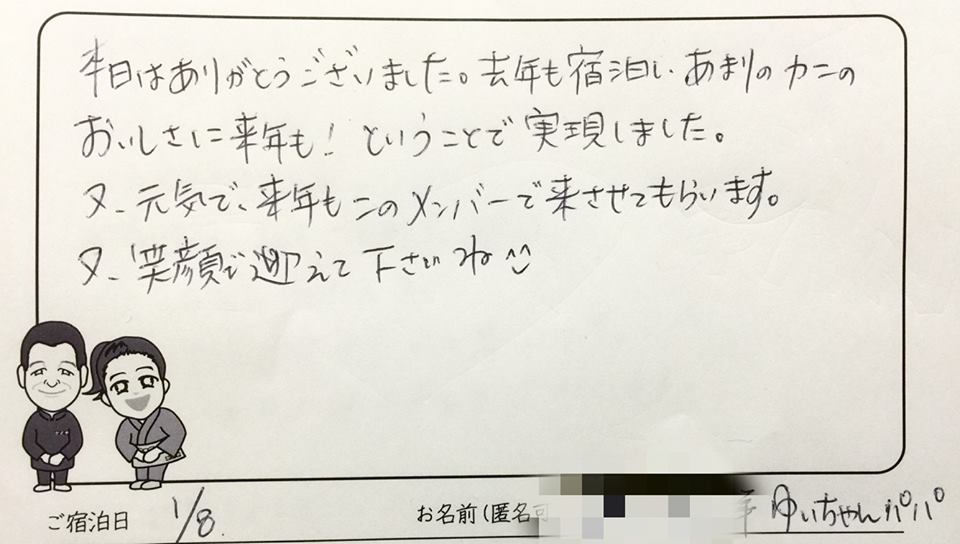 本日はありがとうございました。去年も宿泊し、あまりのカニの
おいしさに来年も！ということで実現しました。
又、元気で、来年もこのメンバーで来させてもらいます。
又、笑顔で迎えて下さいね^^
ご宿泊日 1/8.
お名前(匿名
ゆいちゃんパパ